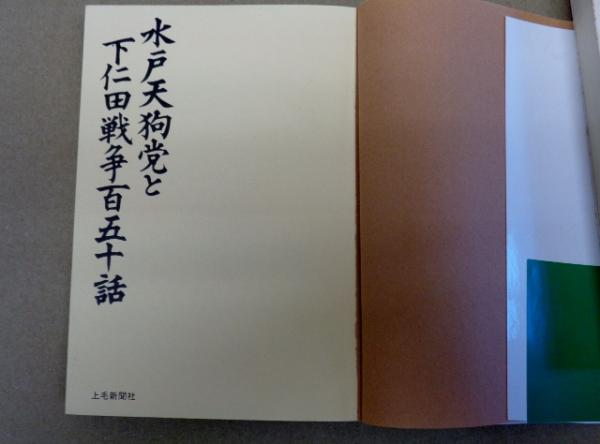 水戸天狗党と
下仁田戦争百五十話
上毛新聞社